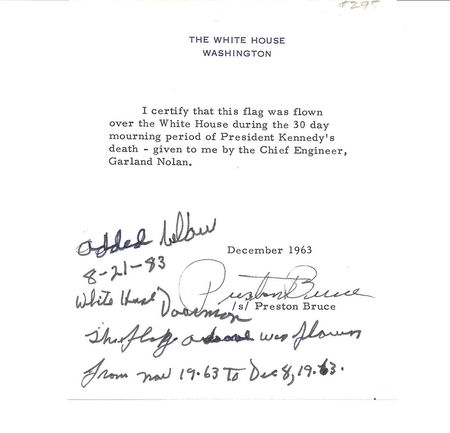 #295
THE WHITE HOUSE
WASHINGTON
I certify that this flag was flown
over the White House during the 30 day
mourning period of President Kennedy's
death - given to me by the Chief Engineer,
Garland Nolan.
added below
8-21-83
December 1963
Preston Bruce
/s/ Preston Bruce
White House Doorman
The flag above was flown
from nov 19.63 To Dec 8, 19.63.